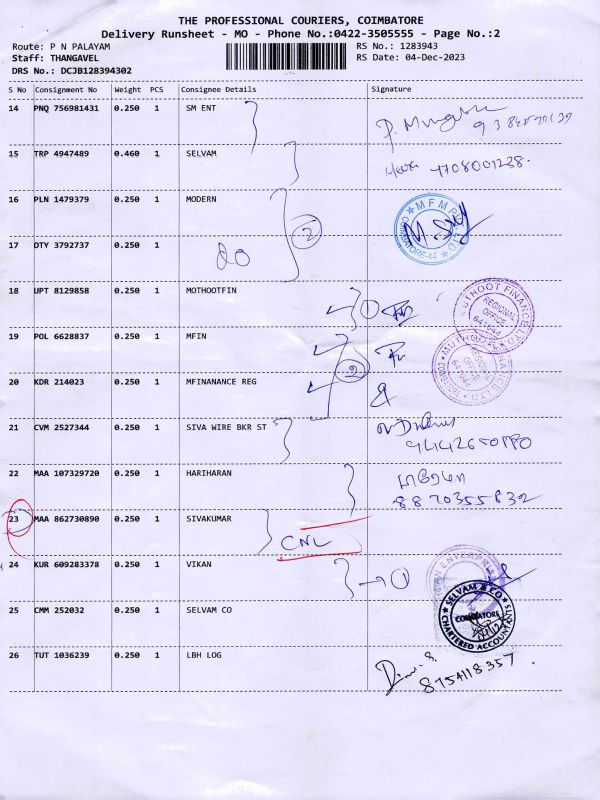 THE PROFESSIONAL COURIERS, COIMBATORE
Delivery Runsheet - MO - Phone No.:0422-3505555 - Page No.:2
Route: P N PALAYAM RS No.: 1283943
Staff: THANGAVEL RS Date: 04-Dec-2023
DRS No.: DCJB128394302
S No Consignment No Weight PCS Consignee Details Signature
14 PNQ 756981431 0.250 1 SM ENT
15 TRP 4947489 0.460 1 SELVAM
4708001238.
16 PLN 1479379 0.250 1 MODERN
2
MFM PVT LTD
COIMBATORE-44
17 DTY 3792737 0.250 1
18 UPT 8129858 0.250 1 MOTHOOTFIN
1
MUTHOOT FINANCE LTD.
REGIONAL
OFFICE
19 POL 6628837 0.250 1 MFIN
2
20 KDR 214023 0.250 1 MFINANANCE REG
21 CVM 2527344 0.250 1 SIVA WIRE BKR ST
22 MAA 107329720 0.250 1 HARIHARAN
8870355832
23 MAA 862730890 0.250 1 SIVAKUMAR
CNL
24 KUR 609283378 0.250 1 VIKAN
1
25 CMM 252032 0.250 1 SELVAM CO
SELVAM & CO
COIMBATORE
CHARTERED ACCOUNTANTS
26 TUT 1036239 0.250 1 LBH LOG
8754118357.